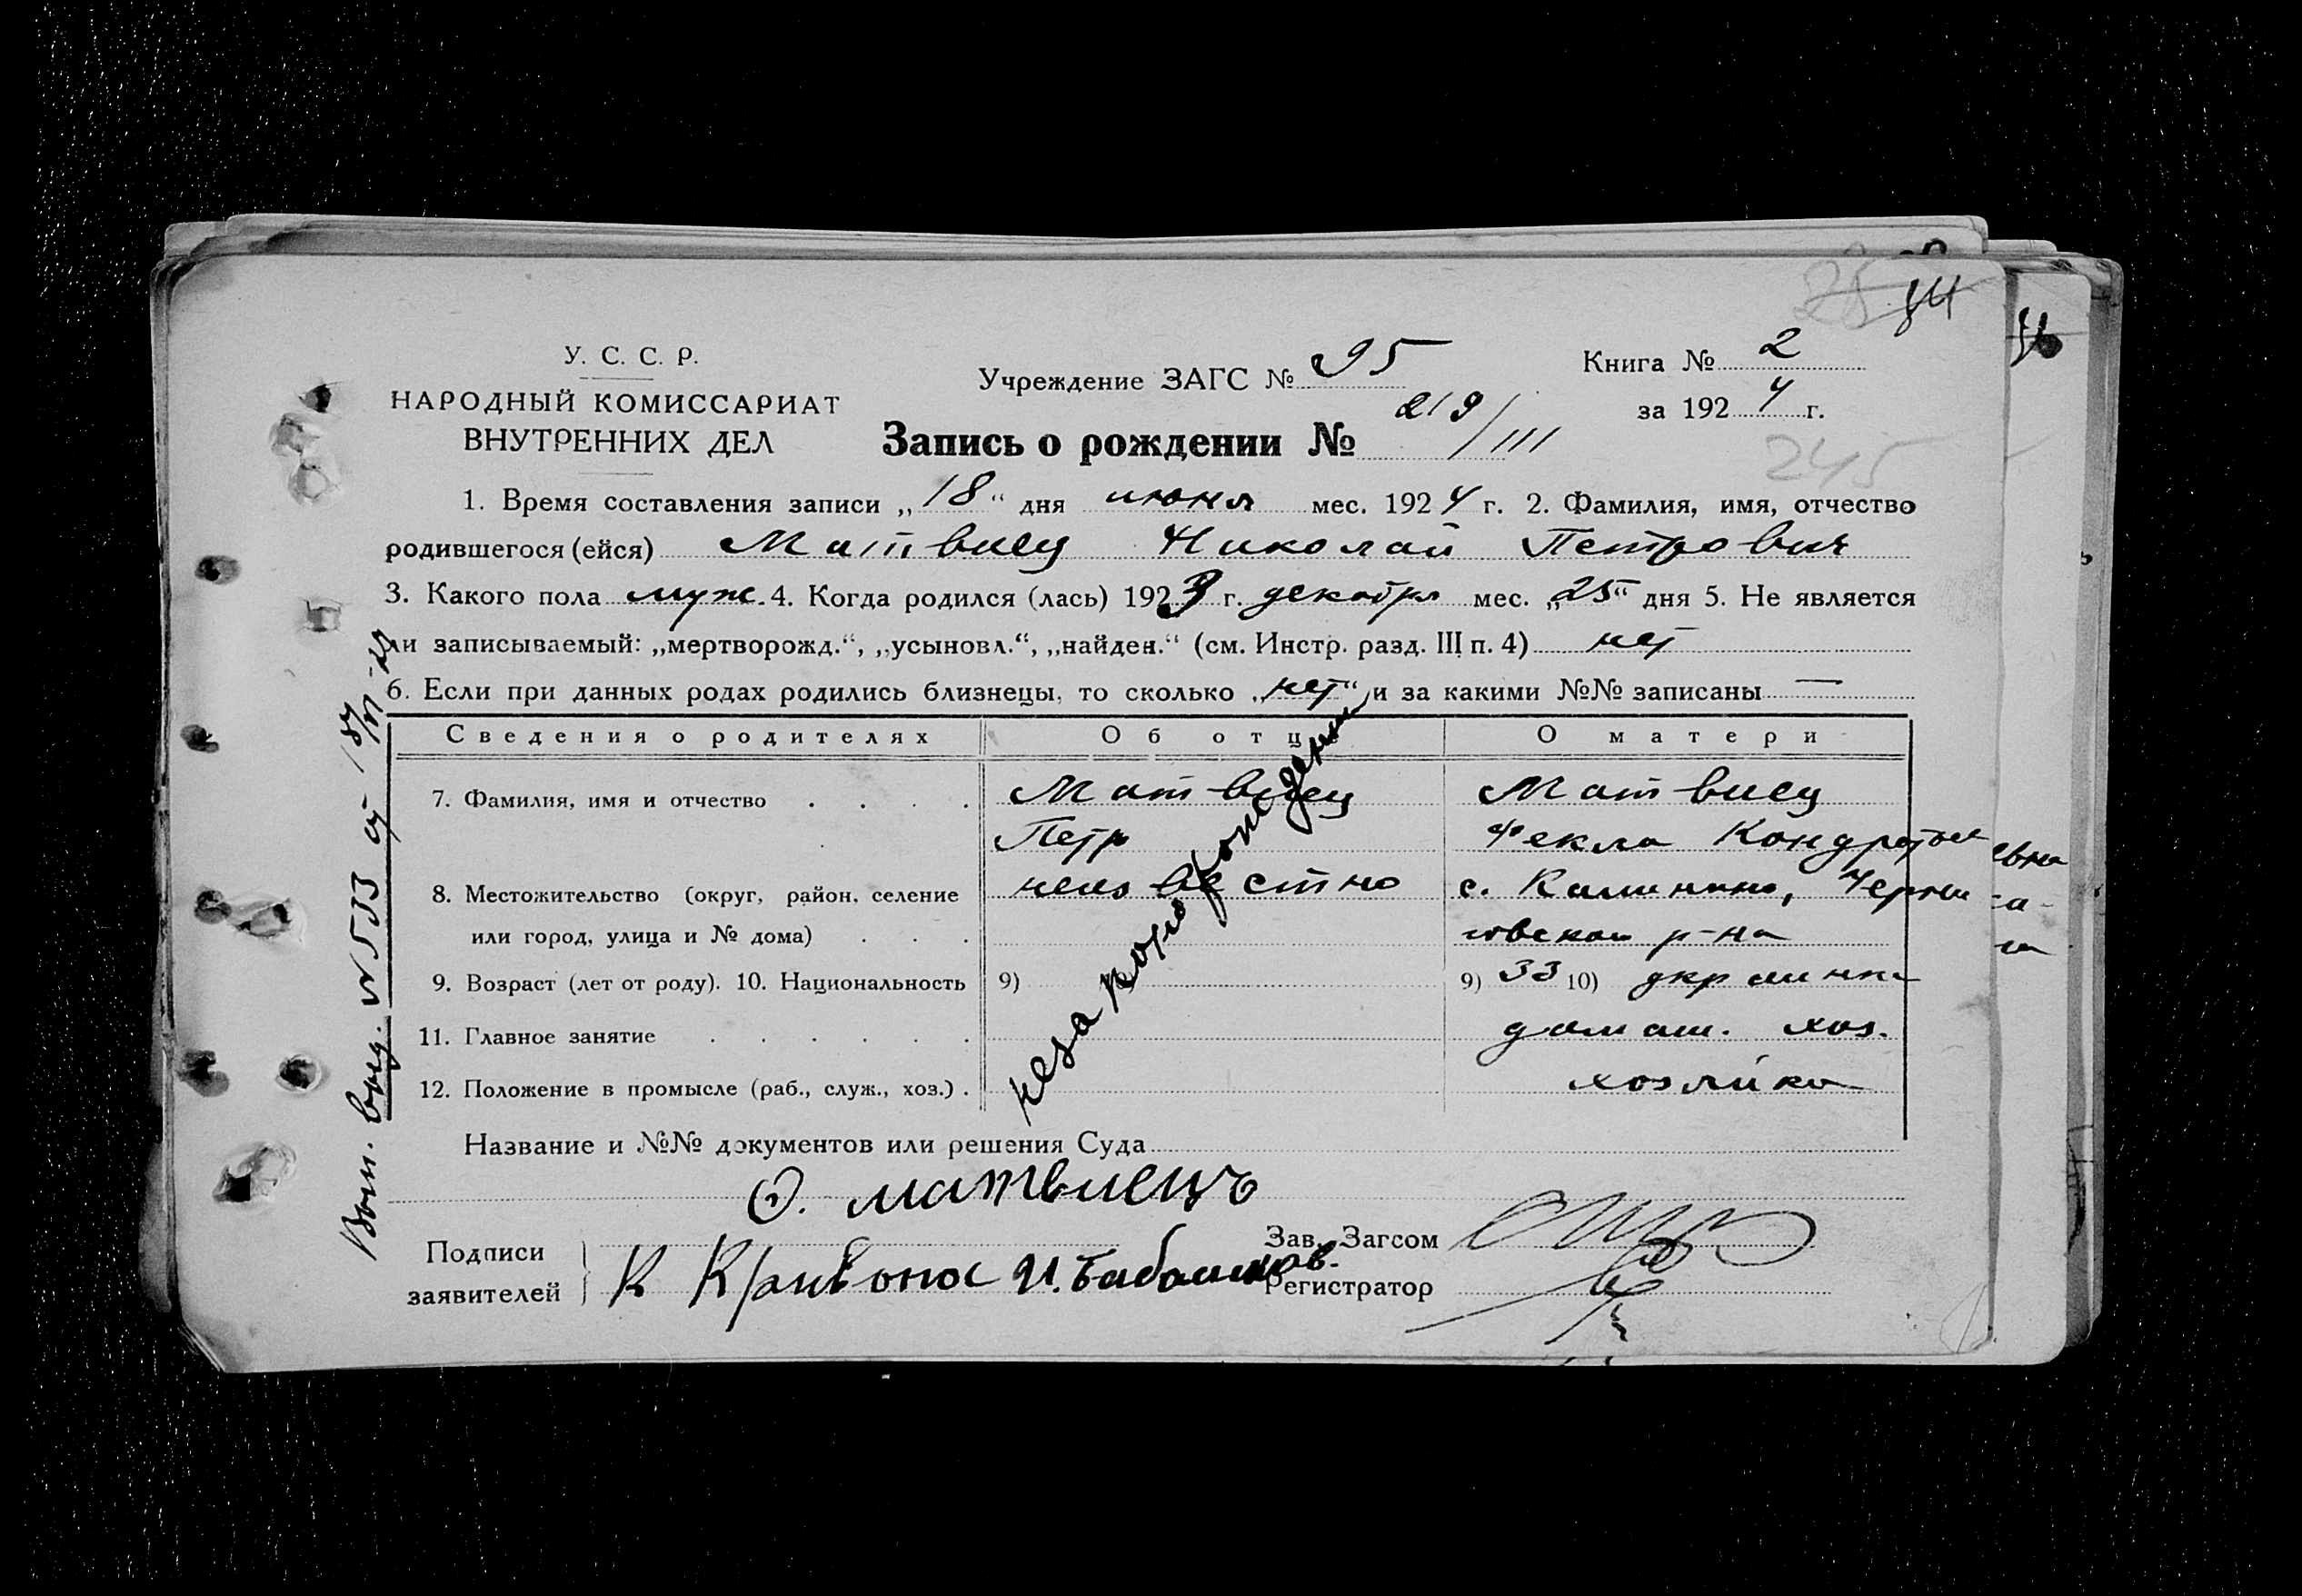 28 84
У. С. С. Р.
НАРОДНЫЙ КОМИССАРИАТ
ВНУТРЕННИХ ДЕЛ
Учреждение ЗАГС № 95
Книга № 2
за 1924 г.
Запись о рождении № 219/III
245
1. Время составления записи „18“ дня июня мес. 1924 г. 2. Фамилия, имя, отчество
родившегося (ейся) Матвиец Николай Петрович
3. Какого пола муж. 4. Когда родился (лась) 1923 г. декабря мес. „25“ дня 5. Не является
ли записываемый: „мертворожд.“, „усыновл.“, „найден.“ (см. Инстр. разд. III п. 4) нет
6. Если при данных родах родились близнецы, то сколько „нет“ и за какими №№ записаны —
Сведения о родителях Об отце О матери
7. Фамилия, имя и отчество Матвиец Матвиец
Петр Фекла Кондратьев
8. Местожительство (округ, район, селение неизвестно с. Калинино, Черни
или город, улица и № дома) говской р-на
9. Возраст (лет от роду). 10. Национальность 9) 9) 33 10) украинка
11. Главное занятие домаш. хоз.
12. Положение в промысле (раб., служ., хоз.) хозяйка
незаконорожденный
Название и №№ документов или решения Суда
Ѳ. Матвиецъ
Подписи
заявителей
К Кривонос И. Бабашков.
Зав. Загсом
Регистратор
Вып. выд. № 533 от 18/VI-24